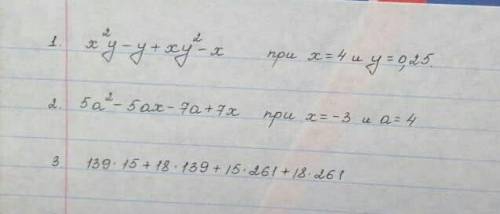 1. x²y - y + xy² - x при x = 4 и y = 0,25.
2. 5a² - 5ax - 7a + 7x при x = -3 и a = 4
3 139·15 + 18·139 + 15·261 + 18·261